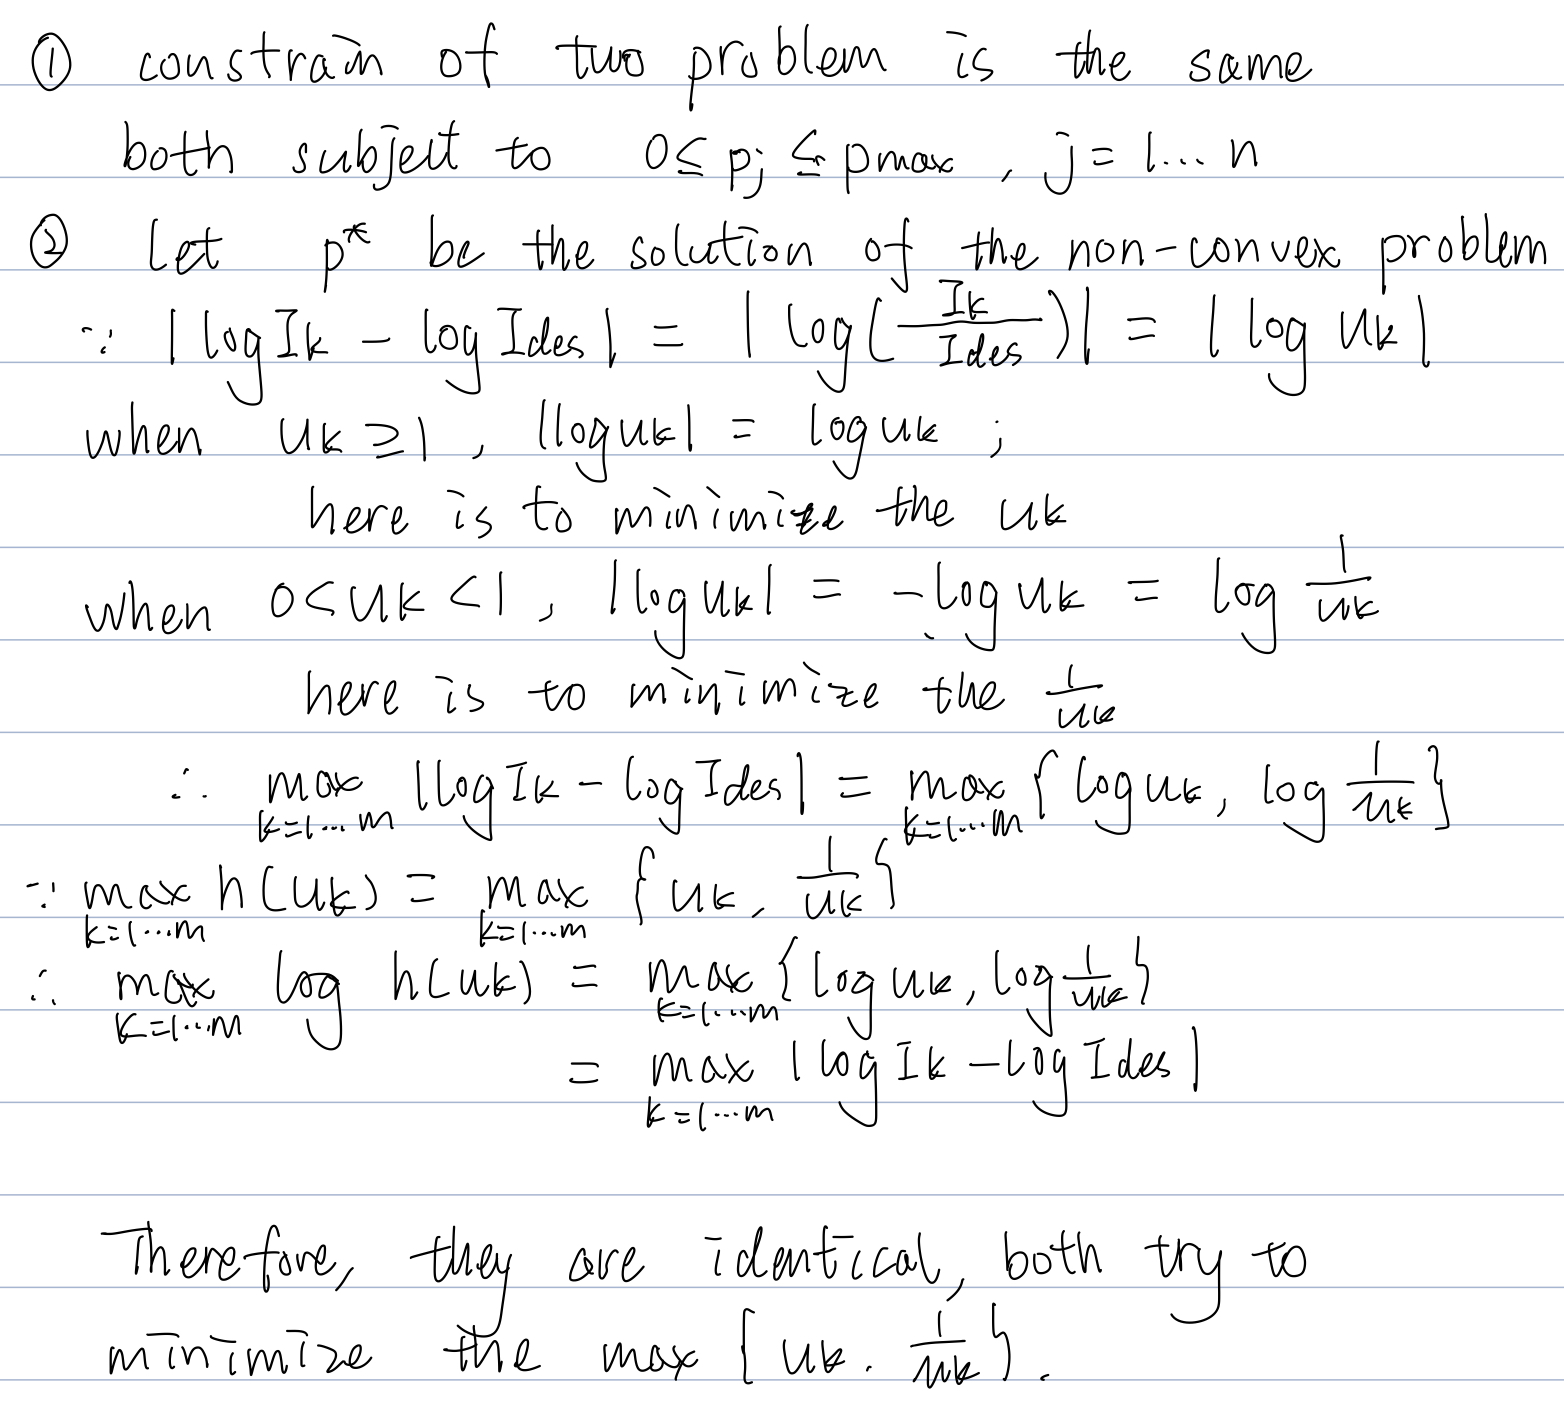 ① constrain of two problem is the same
both subject to 0≤ pj ≤ pmax , j = 1... n
② Let p* be the solution of the non-convex problem
∵ |log Ik - log Ides| = | log( Ik / Ides )| = | log uk |
when uk ≥ 1 , |log uk| = log uk ;
here is to minimize the uk
when 0 < uk < 1 , |log uk| = - log uk = log 1/uk
here is to minimize the 1/uk
∴ max k=1...m |log Ik - log Ides| = max k=1...m { log uk , log 1/uk }
∵ max k=1...m h(uk) = max k=1...m { uk , 1/uk }
∴ max k=1...m log h(uk) = max k=1...m { log uk , log 1/uk }
= max k=1...m | log Ik - log Ides |
Therefore, they are identical, both try to
minimize the max { uk . 1/uk } .